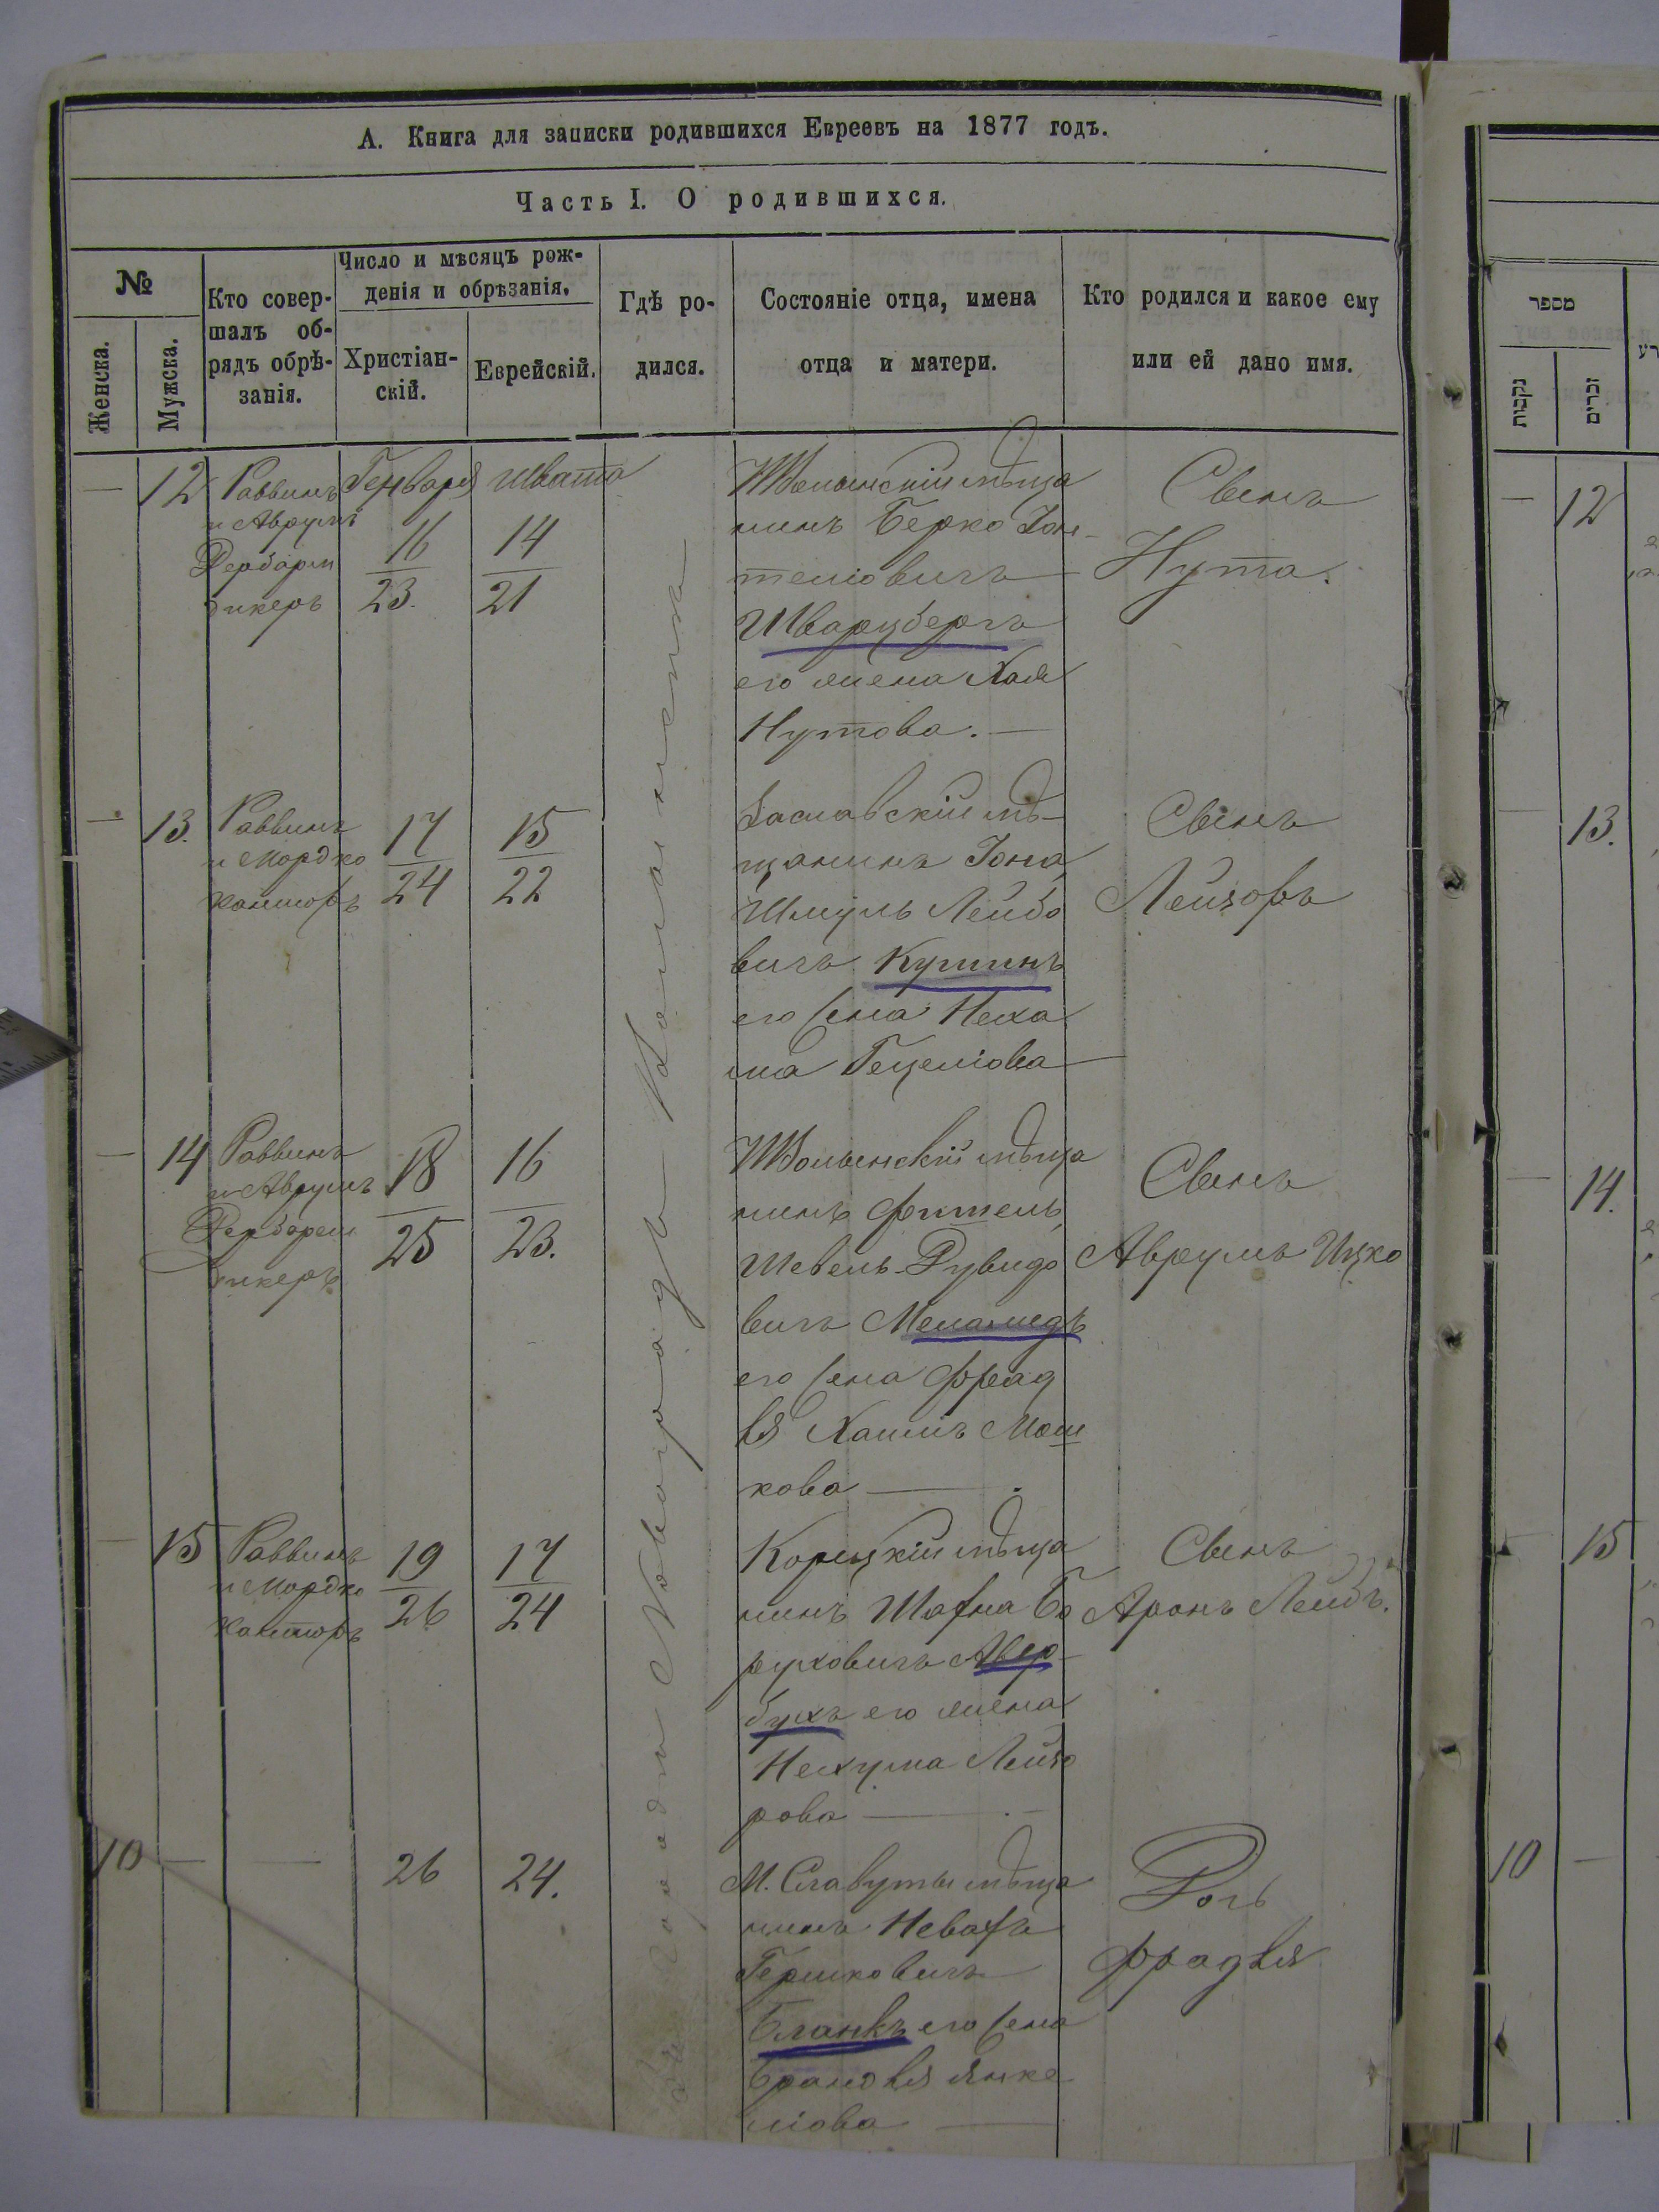 А. Книга для записки родившихся Евреевъ на 1877 годъ.
Часть I. О родившихся.
№
Женска.
Мужска.
Кто совер-
шалъ об-
рядъ обрѣ-
занія.
Число и мѣсяцъ рож-
денія и обрѣзанія.
Христіан-
скій.
Еврейскій.
Гдѣ ро-
дился.
Состояніе отца, имена
отца и матери.
Кто родился и какое ему
или ей дано имя.
въ городѣ Новоградъ Волынскъ
— 12
Раввинъ
и Аврумъ
Дербарм
дикеръ
Генваря
16
23.
Швата
14
21
Волынскій мѣща
нинъ Берко Іон-
теліовичъ
Шварцбергъ
его жена Хая
Нутова. —
Сынъ
Нута.
— 13.
Раввинъ
и Мордко
Канторъ
17
24
15
22
Заславскій мѣ-
щанинъ Іона
Шмуль Лейбо
вичъ Купинъ
его жена Неха
ма Гецеліова —
Сынъ
Лейзоръ
— 14
Раввинъ
и Аврумъ
Дербарм
дикеръ
18
25
16
23.
Волынскій мѣща
нинъ Фишель
Шевель Рувидо
вичъ Меламедъ
его жена Фрад
ля Хаимъ Мош
кова —
Сынъ
Аврумъ Ицко
— 15
Раввинъ
и Мордко
Канторъ
19
26
17
24
Корецкій мѣща
нинъ Шафна Бо
руховичъ Авер-
бухъ его жена
Нехума Лейзо
рова —
Сынъ
Аронъ Лейбъ.
10 — —
26
24.
М. Славуты мѣща
нинъ Невахъ
Гершковичъ
Бланкъ его жена
Брандля Янке
ліова —
Дочь
Фрадля
מספר
נקבות
זכרים
— 12
— 13.
— 14.
— 15
10 —